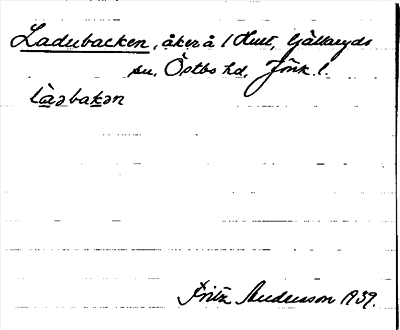 Ladubacken, åker å 1 Hult, Gällaryds
sn, Östbo hd, Jönk. l.
làəbakən
Fritz Andersson 1939.